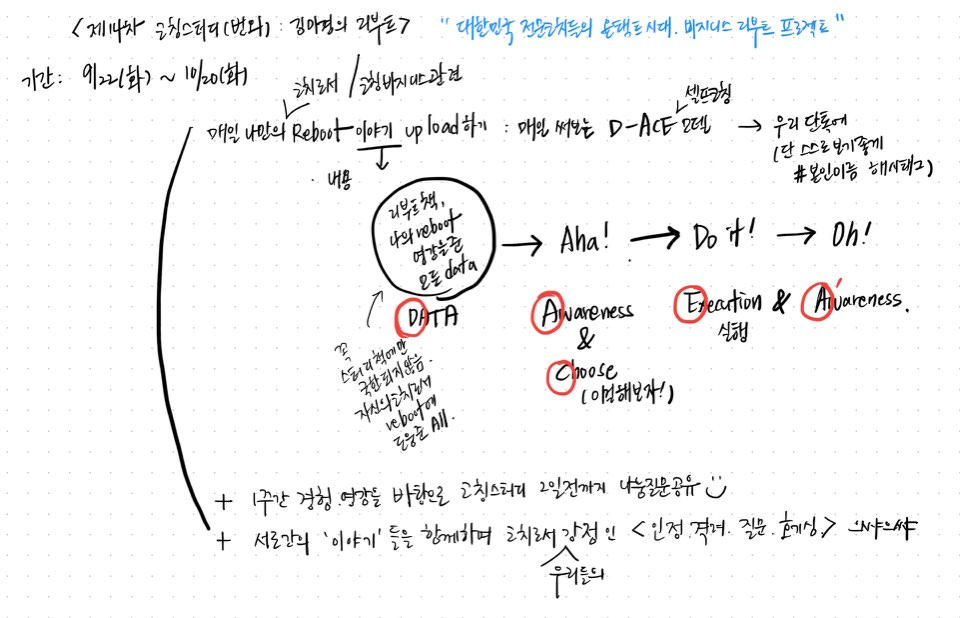 <제14차 코칭스터디(번외) : 김미경의 리부트> "대한민국 전문코치들의 온택트시대. 비지니스 리부트 프로젝트"
기간 : 9/22(화) ~ 10/20(화)
코치로서 / 코칭비지니스관련
매일 나만의 Reboot 이야기 upload하기 : 매일 써보는 D-ACE 모델 → 우리 단톡에
셀프코칭
(단 스스로 보기좋게
#본인이름 해시태그)
· 내용
리부트책,
나의 reboot
영감을준
모든 data
→ Aha! → Do it! → Oh!
DATA
Awareness
&
Choose
(이렇게해보자!)
Execution & Awareness.
실행
꼭
스터디책에만
국한되지않음.
자신의 코치로서
reboot에
도움준 All.
+ 1주간 경험.영감들 바탕으로 코칭스터디 2일전까지 나눔질문공유
+ 서로간의 '이야기'들을 함께하며 코치로서 강점인 <인정.격려.질문.호기심> 으쌰으쌰
우리들의